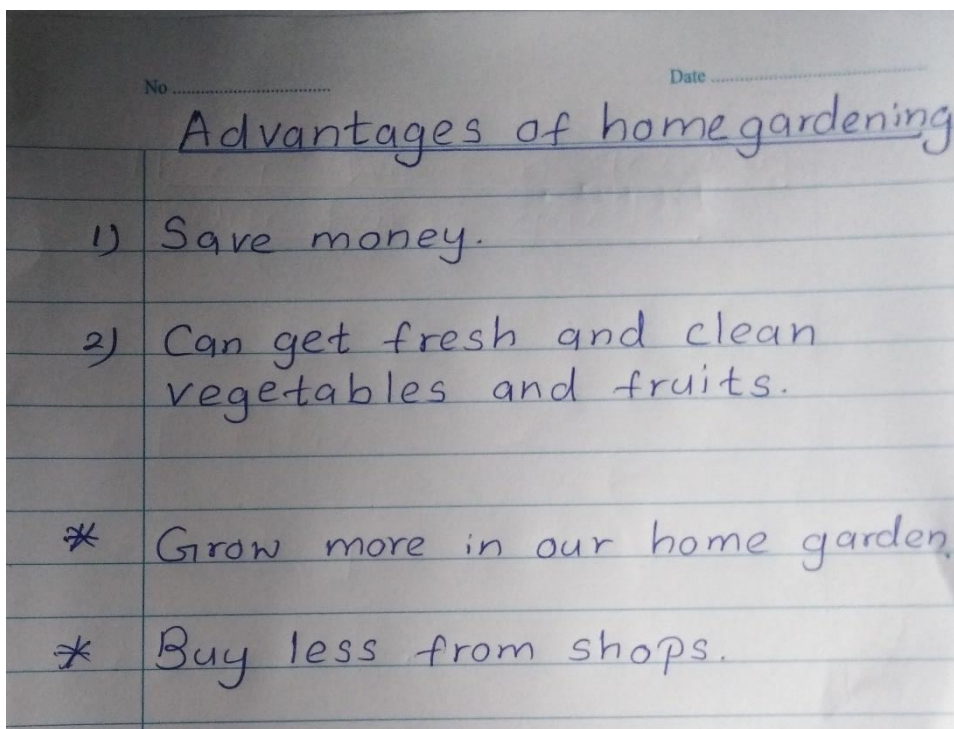 No ................................ Date ................................
Advantages of home gardening
1) Save money.
2) Can get fresh and clean
vegetables and fruits.
* Grow more in our home garden.
* Buy less from shops.